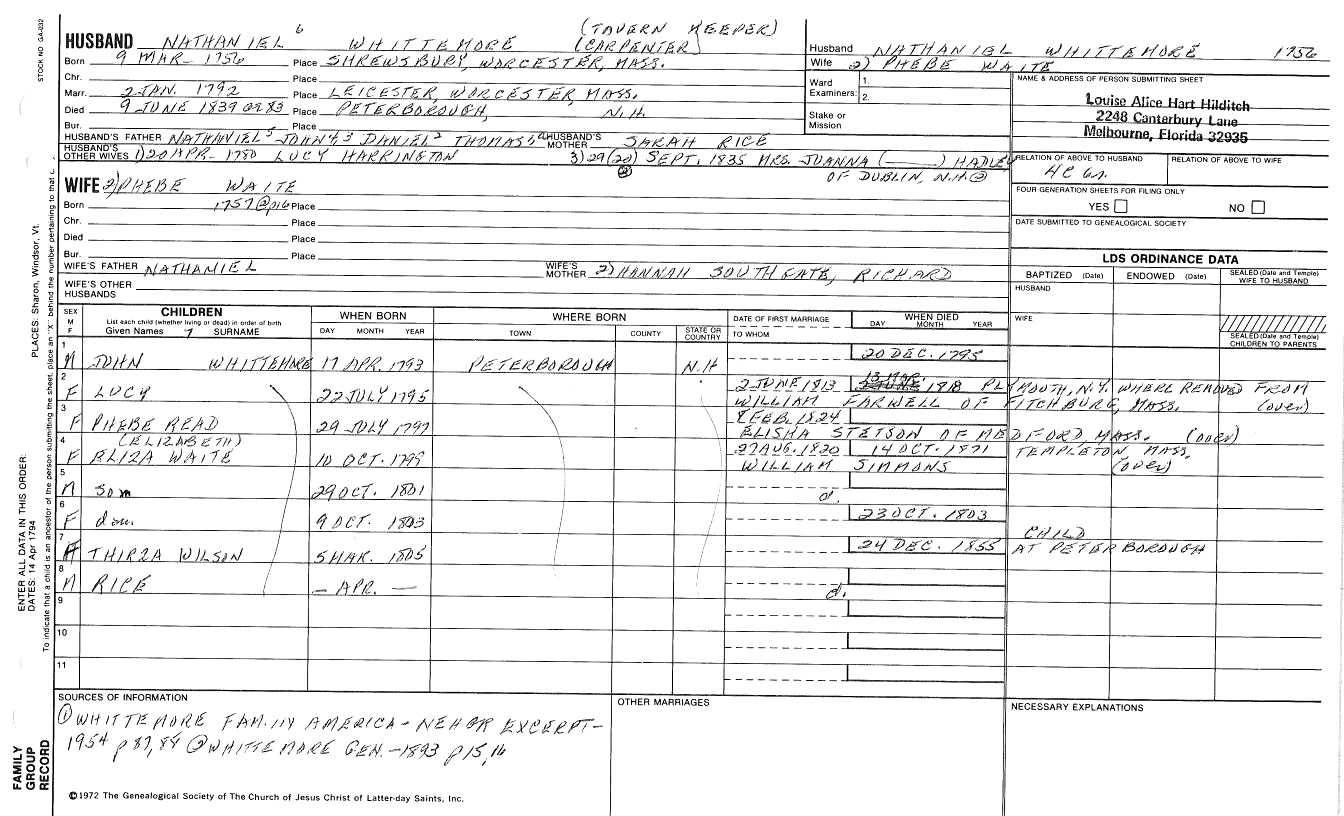 STOCK NO. GA-032
6 (TAVERN KEEPER)
HUSBAND NATHANIEL WHITTEMORE (CARPENTER)
Born 9 MAR- 1756 Place SHREWSBURY, WORCESTER, MASS.
Chr. Place
Marr. 2 JAN. 1792 Place LEICESTER, WORCESTER, MASS.
Died 9 JUNE 1839 ae 83 Place PETERBOROUGH, N.H.
Bur. Place
HUSBAND'S FATHER NATHANIEL5 JOHN4,3 DANIEL2 THOMAS1 HUSBAND'S MOTHER SARAH RICE
HUSBAND'S OTHER WIVES 1) 20 APR- 1780 LUCY HARRINGTON 3) 29 (20) SEPT. 1835 MRS. JOANNA (____) HADLEY
② OF DUBLIN, N.H.②
WIFE 2) PHEBE WAITE
Born 1757 ② p16 Place
Chr. Place
Died Place
Bur. Place
WIFE'S FATHER NATHANIEL WIFE'S MOTHER 2) HANNAH SOUTHGATE, RICHARD
WIFE'S OTHER HUSBANDS
Husband NATHANIEL WHITTEMORE 1756
Wife 2) PHEBE WAITE
Ward Examiners: 1.
2.
Stake or Mission
NAME & ADDRESS OF PERSON SUBMITTING SHEET
Louise Alice Hart Hilditch
2248 Canterbury Lane
Melbourne, Florida 32935
RELATION OF ABOVE TO HUSBAND RELATION OF ABOVE TO WIFE
4C 6r.
FOUR GENERATION SHEETS FOR FILING ONLY
YES NO
DATE SUBMITTED TO GENEALOGICAL SOCIETY
LDS ORDINANCE DATA
BAPTIZED (Date) ENDOWED (Date) SEALED (Date and Temple) WIFE TO HUSBAND
HUSBAND
WIFE
SEALED (Date and Temple) CHILDREN TO PARENTS
SEX M F CHILDREN WHEN BORN WHERE BORN DATE OF FIRST MARRIAGE WHEN DIED
List each child (whether living or dead) in order of birth
Given Names 7 SURNAME DAY MONTH YEAR TOWN COUNTY STATE OR COUNTRY TO WHOM DAY MONTH YEAR
1 M JOHN WHITTEMORE 17 APR. 1793 PETERBOROUGH N.H 20 DEC. 1795
2 F LUCY 22 JULY 1795 2 JUNE 1813 13 MAR. 1818 PLYMOUTH, N.Y. WHERE REMOVED FROM
WILLIAM FARWELL OF FITCHBURG, MASS. (over)
3 F PHEBE READ 29 JULY 1797 8 FEB. 1824
ELISHA STETSON OF MEDFORD MASS. (over)
4 F (ELIZABETH) ELIZA WAITE 10 OCT. 1799 27 AUG. 1820 14 OCT. 1871 TEMPLETON, MASS.
WILLIAM SIMMONS (over)
5 M son 29 OCT. 1801 d.
6 F dau. 9 OCT. 1803 23 OCT. 1803 CHILD
7 F THIRZA WILSON 5 MAR. 1805 24 DEC. 1855 AT PETERBOROUGH
8 M RICE — APR. — d.
9
10
11
SOURCES OF INFORMATION
① WHITTEMORE FAMILY AMERICA - NEHGR EXCERPT-
1954 p 87, 84 ② WHITTEMORE GEN. - 1893 p 15, 16
OTHER MARRIAGES
NECESSARY EXPLANATIONS
©1972 The Genealogical Society of The Church of Jesus Christ of Latter-day Saints, Inc.
PLACES: Sharon, Windsor, Vt.
ENTER ALL DATA IN THIS ORDER:
DATES: 14 Apr 1794
To indicate that a child is an ancestor of the person submitting the sheet, place an "X" behind the number pertaining to that c.
FAMILY
GROUP
RECORD